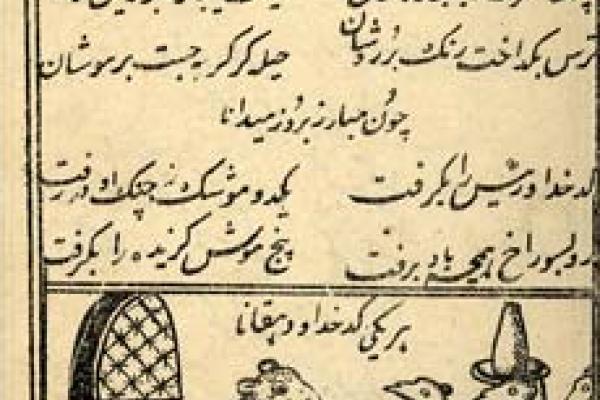 ترس بکداخت رنک بر روشان حیله کر کربه جست بر سوشان
چون مبارز بروز میدانا
کدخدا و رییس را بکرفت یکدو موشک ز چنک او در رفت
رو بسوراخ همچو باد برفت پنج موش کزیده را بکرفت
هر یکی کدخدا و دهقانا